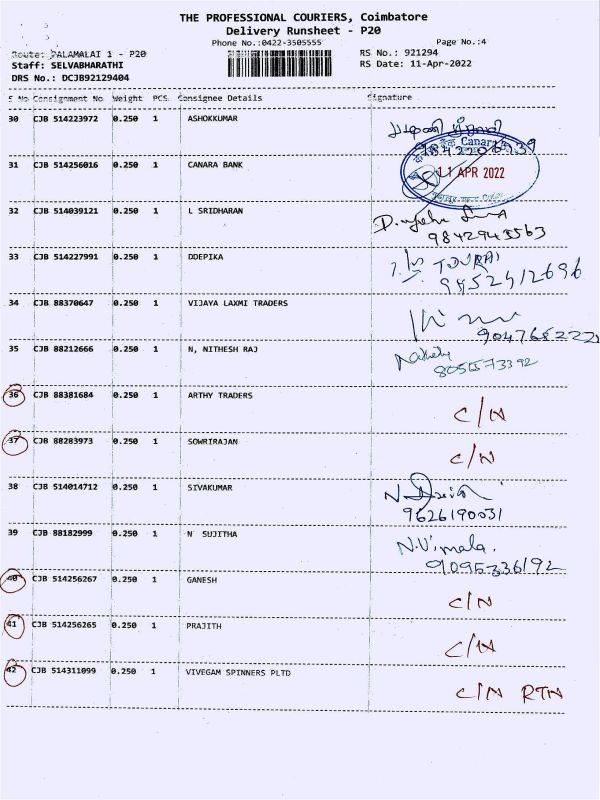 THE PROFESSIONAL COURIERS, Coimbatore
Delivery Runsheet - P20
Phone No.:0422-3505555 Page No.:4
Route: PALAMALAI 1 - P20 RS No.: 921294
Staff: SELVABHARATHI RS Date: 11-Apr-2022
DRS No.: DCJB92129404
S No Consignment No Weight PCS. Consignee Details Signature
30 CJB 514223972 0.250 1 ASHOKKUMAR
31 CJB 514256016 0.250 1 CANARA BANK
Canara
11 APR 2022
32 CJB 514039121 0.250 1 L SRIDHARAN
9842943563
33 CJB 514227991 0.250 1 DDEPIKA
9852412696
34 CJB 88370647 0.250 1 VIJAYA LAXMI TRADERS
35 CJB 88212666 0.250 1 N, NITHESH RAJ
36 CJB 88381684 0.250 1 ARTHY TRADERS C/N
37 CJB 88283973 0.250 1 SOWRIRAJAN C/N
38 CJB 514014712 0.250 1 SIVAKUMAR
9626190031
39 CJB 88182999 0.250 1 N SUJITHA N.Vimala.
9095336192
40 CJB 514256267 0.250 1 GANESH C/N
41 CJB 514256265 0.250 1 PRAJITH C/N
42 CJB 514311099 0.250 1 VIVEGAM SPINNERS PLTD C/N RTN